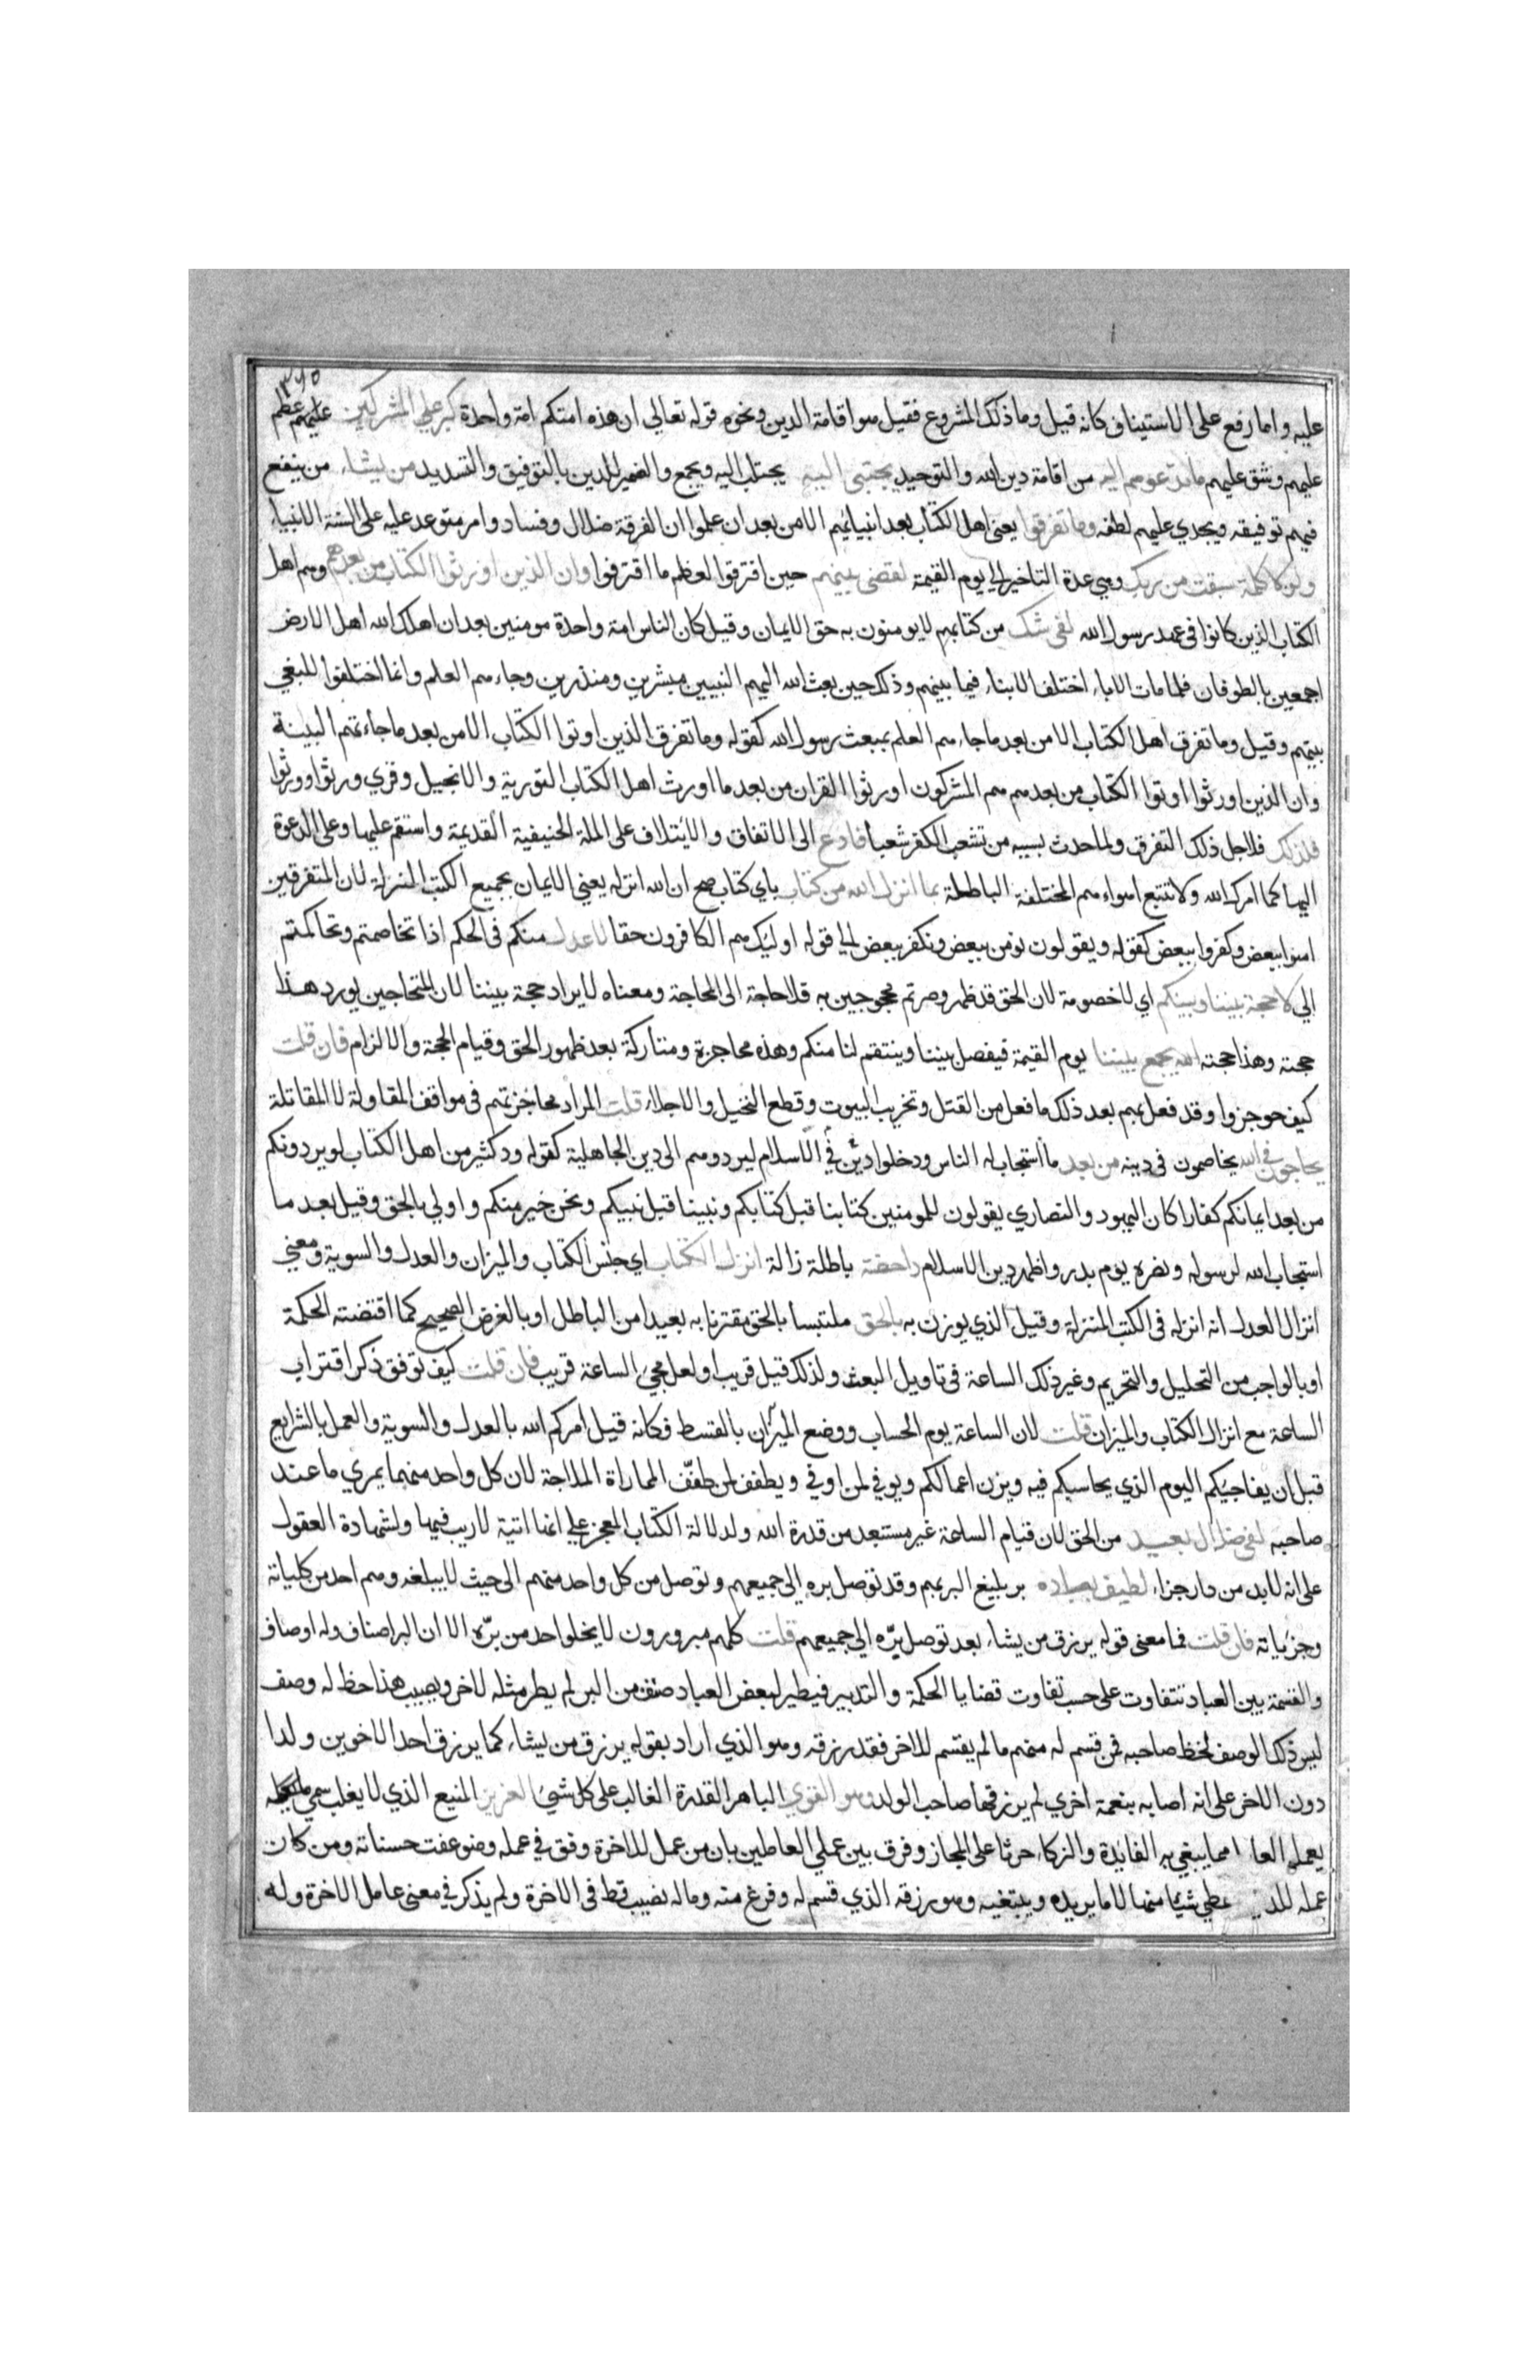 ۳۷۵
عليه واما رفع على الاستيناف كانه قيل وما ذلك المشروع فقيل هو اقامة الدين ونحوه قوله تعالى ان هذه امتكم امة واحدة كبر على المشركين عظم
عليهم وشق عليهم ما تدعوهم اليه من اقامة دين الله والتوحيد يجتبى اليه يجتلب اليه ويجمع والضمير للدين بالتوفيق والتسديد من يشاء من ينفع
فيهم توفيقه ويجدي عليهم لطفه وما تفرقوا يعنى اهل الكتاب بعد انبيائهم الا من بعد ان علموا ان الفرقة ضلال وفساد وامر متوعد عليه على السنة الانبياء
ولولا كلمة سبقت من ربك وهي عدة التاخير الى يوم القيمة لقضى بينهم حين افترقوا لعظم ما اقترفوا وان الذين اورثوا الكتاب من بعدهم وهم اهل
الكتاب الذين كانوا فى عهد رسول الله لفى شك من كتابهم لا يومنون به حق الايمان وقيل كان الناس امة واحدة مومنين بعد ان اهلك الله اهل الارض
اجمعين بالطوفان فلما مات الاباء اختلف الابناء فيما بينهم وذلك حين بعث الله اليهم النبيين مبشرين ومنذرين وجاءهم العلم وانما اختلفوا للبغي
بينهم وقيل وما تفرق اهل الكتاب الا من بعد ما جاءهم العلم بمبعث رسول الله كقوله وما تفرق الذين اوتوا الكتاب الا من بعد ما جاءتهم البينة
وان الذين اورثوا اوتوا الكتاب من بعدهم هم المشركون اورثوا القران من بعد ما اورث اهل الكتاب التورية والانجيل وقري ورثوا وورثوا
فلذلك فلاجل ذلك التفرق ولما حدث بسببه من تشعب الكفر شعبا فادع الى الاتفاق والايتلاف على الملة الحنيفية القديمة واستقم عليها وعلى الدعوة
اليها كما امرك الله ولا تتبع اهواءهم المختلفة الباطلة بما انزل الله من كتاب باي كتاب صح ان الله انزله يعني الايمان بجميع الكتب المنزلة لان المتفرقين
امنوا ببعض وكفروا ببعض كقوله ويقولون نومن ببعض ونكفر ببعض الى قوله اوليك هم الكافرون حقا لاعدل منكم فى الحكم اذا تخاصمتم وتحاكمتم
الي لا حجة بيننا وبينكم اي لا خصومة لان الحق قد ظهر وصرتم محجوجين به فلا حاجة الى المحاجة ومعناه لا ايراد حجة بيننا لان المتحاجين يورد هذا
حجته وهذا حجته الله يجمع بيننا يوم القيمة فيفصل بيننا وينتقم لنا منكم وهذه محاجزة ومتاركة بعد ظهور الحق وقيام الحجة والالزام فان قلت
كيف حوجزوا وقد فعل بهم بعد ذلك ما فعل من القتل وتخريب البيوت وقطع النخيل والاجلاء قلت المراد محاجزتهم فى مواقف المقاولة لا المقاتلة
يحاجون فى الله يخاصمون فى دينه من بعد ما استجاب له الناس ودخلوا فى الاسلام ليردوهم الى دين الجاهلية كقوله ود كثير من اهل الكتاب لو يردونكم
من بعد ايمانكم كفارا كان اليهود والنصاري يقولون للمومنين كتابنا قبل كتابكم ونبينا قبل نبيكم ونحن خير منكم واولي بالحق وقيل بعد ما
استجاب الله لرسوله ونصره يوم بدر واظهر دين الاسلام داحضة باطلة زالة انزل الكتاب اي جنس الكتاب والميزان والعدل والسوية ومعني
انزال العدل انه انزله فى الكتب المنزلة وقيل الذي يوزن به بالحق ملتبسا بالحق مقترنا به بعيدا من الباطل او بالغرض الصحيح كما اقتضته الحكمة
او بالواجب من التحليل والتحريم وغير ذلك الساعة فى تاويل البعث ولذلك قيل قريب او لعل مجيء الساعة قريب فان قلت كيف توفق ذكر اقتراب
الساعة مع انزال الكتاب والميزان قلت لان الساعة يوم الحساب ووضع الميزان بالقسط فكانه قيل امركم الله بالعدل والسوية والعمل بالشرايع
قبل ان يفاجيكم اليوم الذي يحاسبكم فيه ويزن اعمالكم ويوفي لمن اوفي ويطفف لمن طفف المماراة الملاجة لان كل واحد منهما يمري ما عند
صاحبه لفى ضلال بعيد من الحق لان قيام الساعة غير مستبعد من قدرة الله ولدلالة الكتاب المعجز علي انها اتية لا ريب فيها ولشهادة العقول
على انه لا بد من دار جزاء لطيف بعباده بر بليغ البر بهم وقد توصل بره الى جميعهم وتوصل من كل واحد منهم الى حيث لا يبلغه وهم احد من كلياته
وجزياته فان قلت فما معنى قوله يرزق من يشاء بعد توصل بره الي جميعهم قلت كلهم مبرورون لا يخلو احد من بره الا ان البر اصناف وله اوصاف
والقسمة بين العباد تتفاوت على حسب تفاوت قضايا الحكمة والتدبير فيطير لبعض العباد صنف من البر لم يطر مثله لاخر ويصيب هذا حظ له وصف
ليس ذلك الوصف لحظ صاحبه فمن قسم له منهم ما لم يقسم للاخر فقد رزقه وهو الذي اراد بقوله يرزق من يشاء كما يرزق احد الاخوين ولدا
دون الاخر على انه اصابه بنعمة اخري لم يرزقها صاحب الولد وهو القوي الباهر القدرة الغالب على كل شيئ العزيز المنيع الذي لا يغلب سمي ما
يعمله العا مما يبغي به الفايدة والزكاء حرثا على المجاز وفرق بين عملي العاملين بان من عمل للاخرة وفق في عمله وضوعفت حسناته ومن كان
عمله للد عطي شيئا منها لا ما يريده ويبتغيه وهو رزقه الذي قسم له وفرغ منه وما له نصيب قط فى الاخرة ولم يذكر في معنى عامل الاخرة وله